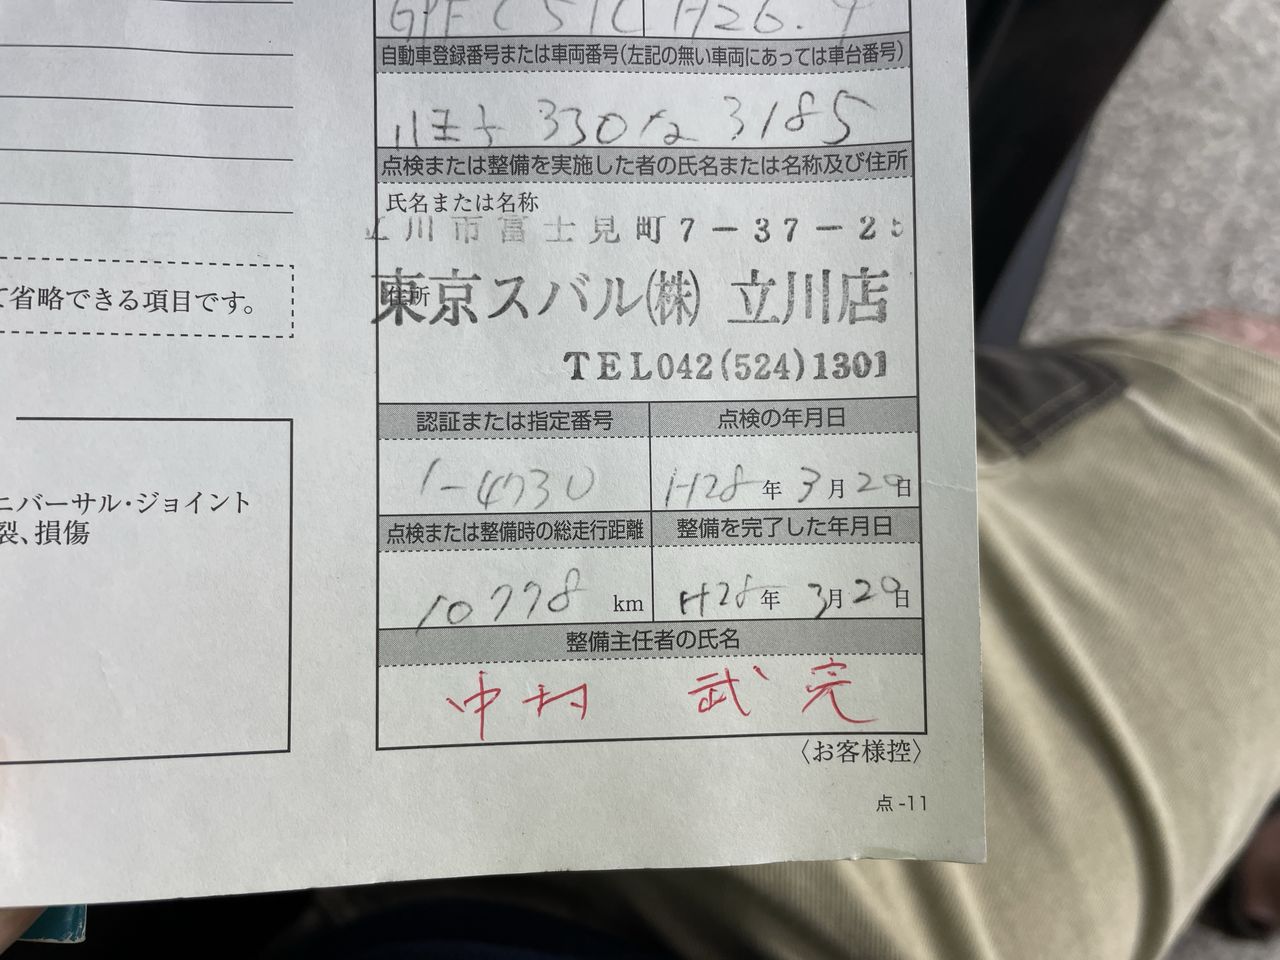 H26.9
自動車登録番号または車両番号(左記の無い車両にあっては車台番号)
八王子 330 な 3185
点検または整備を実施した者の氏名または名称及び住所
氏名または名称
立川市富士見町7-37-25
住所
東京スバル(株) 立川店
TEL042(524)1301
て省略できる項目です。
認証または指定番号
点検の年月日
1-4730
H28年3月20日
ニバーサル・ジョイント
裂、損傷
点検または整備時の総走行距離
整備を完了した年月日
10778 km
H28年3月20日
整備主任者の氏名
中村 武
〈お客様控〉
点-11